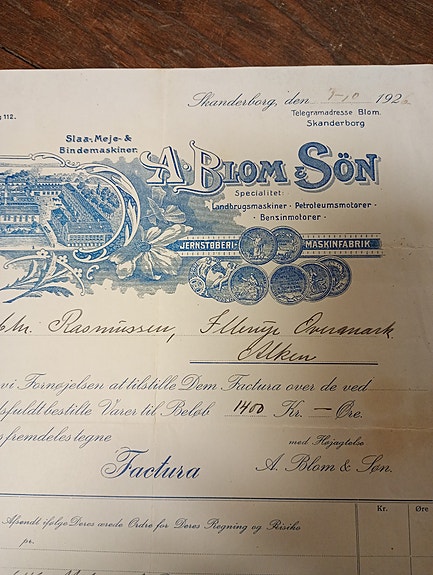 Skanderborg, den 9-10 192
112.
Telegramadresse Blom.
Skanderborg
Slaa-, Meje- &
Bindemaskiner.
A. BLOM & SÖN
Specialitet:
Landbrugsmaskiner · Petroleumsmotorer ·
· Benzinmotorer ·
JERNSTØBERI- MASKINFABRIK
Rasmussen,
Alken
vi Fornøjelsen at tilstille Dem Factura over de ved
bestilte Varer til Beløb 1400 Kr. — Øre.
fremdeles tegne
med Højagtelse
Factura A. Blom & Søn.
Kr. Øre
Afsendt ifølge Deres ærede Ordre for Deres Regning og Risiko
pr.